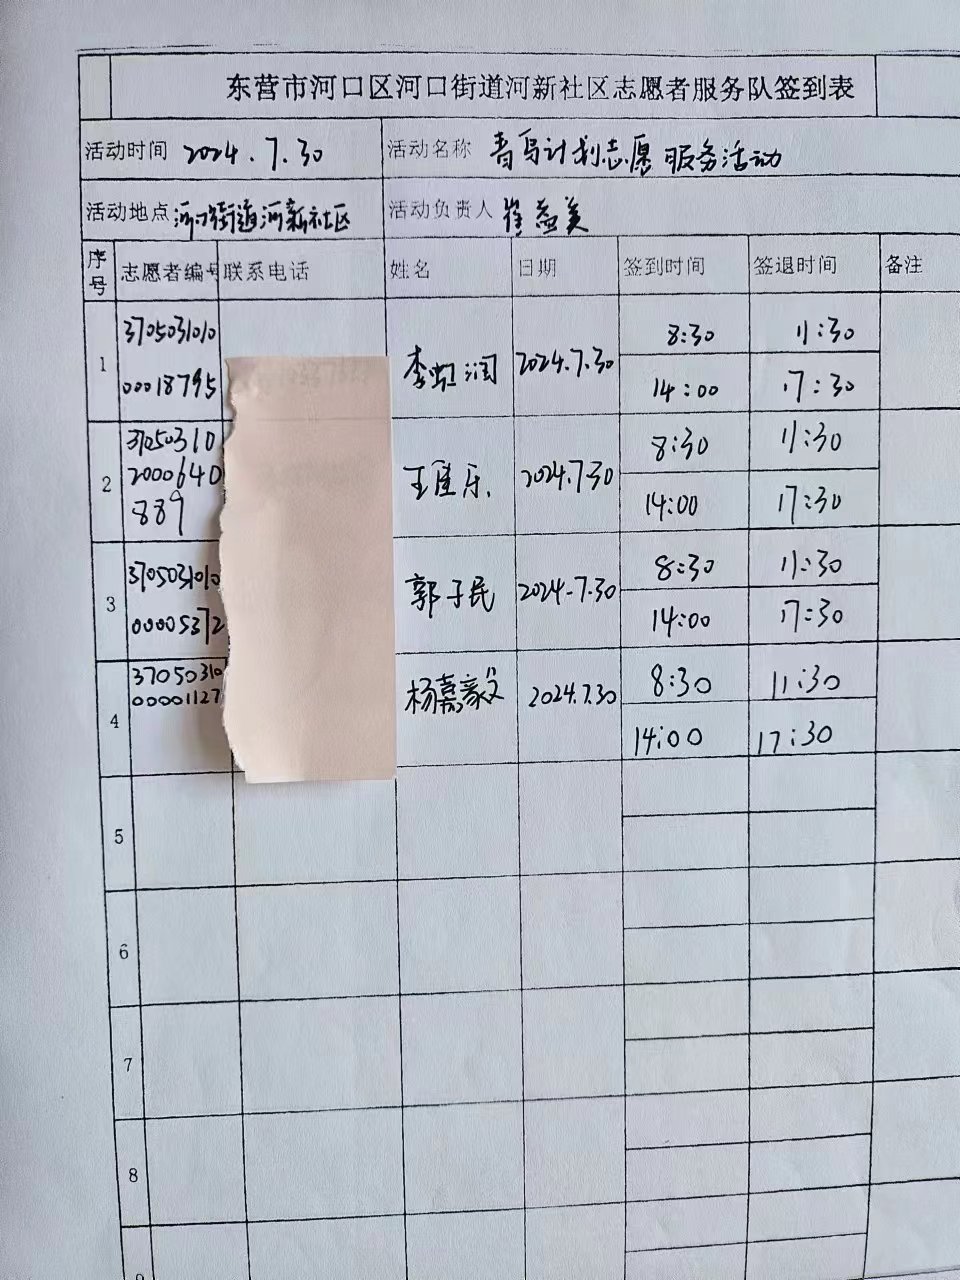 东营市河口区河口街道河新社区志愿者服务队签到表
活动时间 2024.7.30 活动名称 青马计划志愿服务活动
活动地点 河口街道河新社区 活动负责人 崔益美
序号 志愿者编号 联系电话 姓名 日期 签到时间 签退时间 备注
1 3705031010 00018795 李 润 2024.7.30 8:30 11:30
14:00 17:30
2 37050310 2000640 889 王佳乐 2024.7.30 8:30 11:30
14:00 17:30
3 3705031010 00005372 郭子民 2024.7.30 8:30 11:30
14:00 17:30
4 37050310 00001127 杨嘉毅 2024.7.30 8:30 11:30
14:00 17:30
5
6
7
8